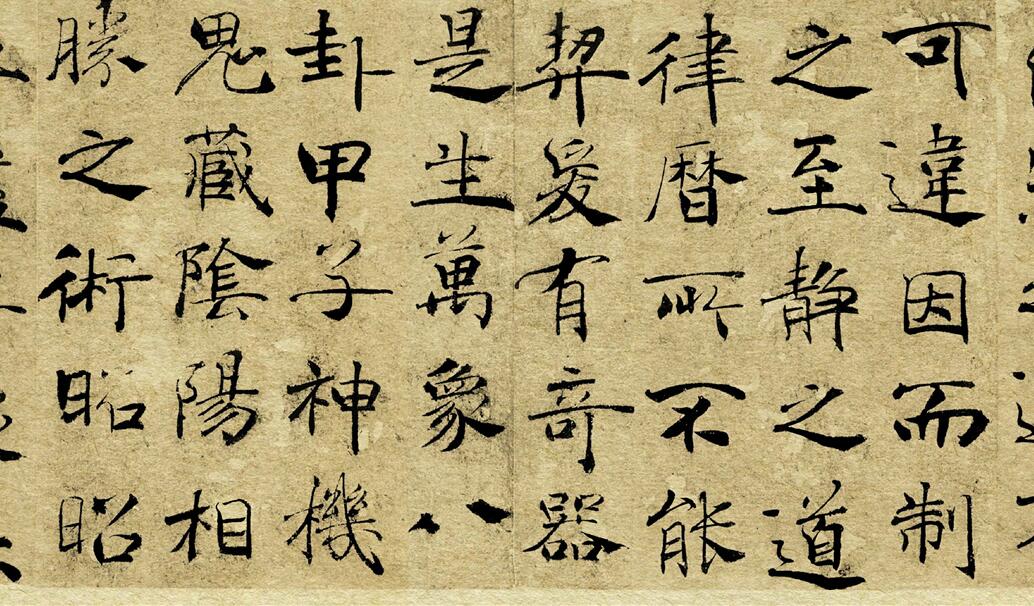 可違因而制
之至静之道
律暦所不能
契爰有竒器
是生萬象八
卦甲子神機
鬼藏陰陽相
勝之術昭昭